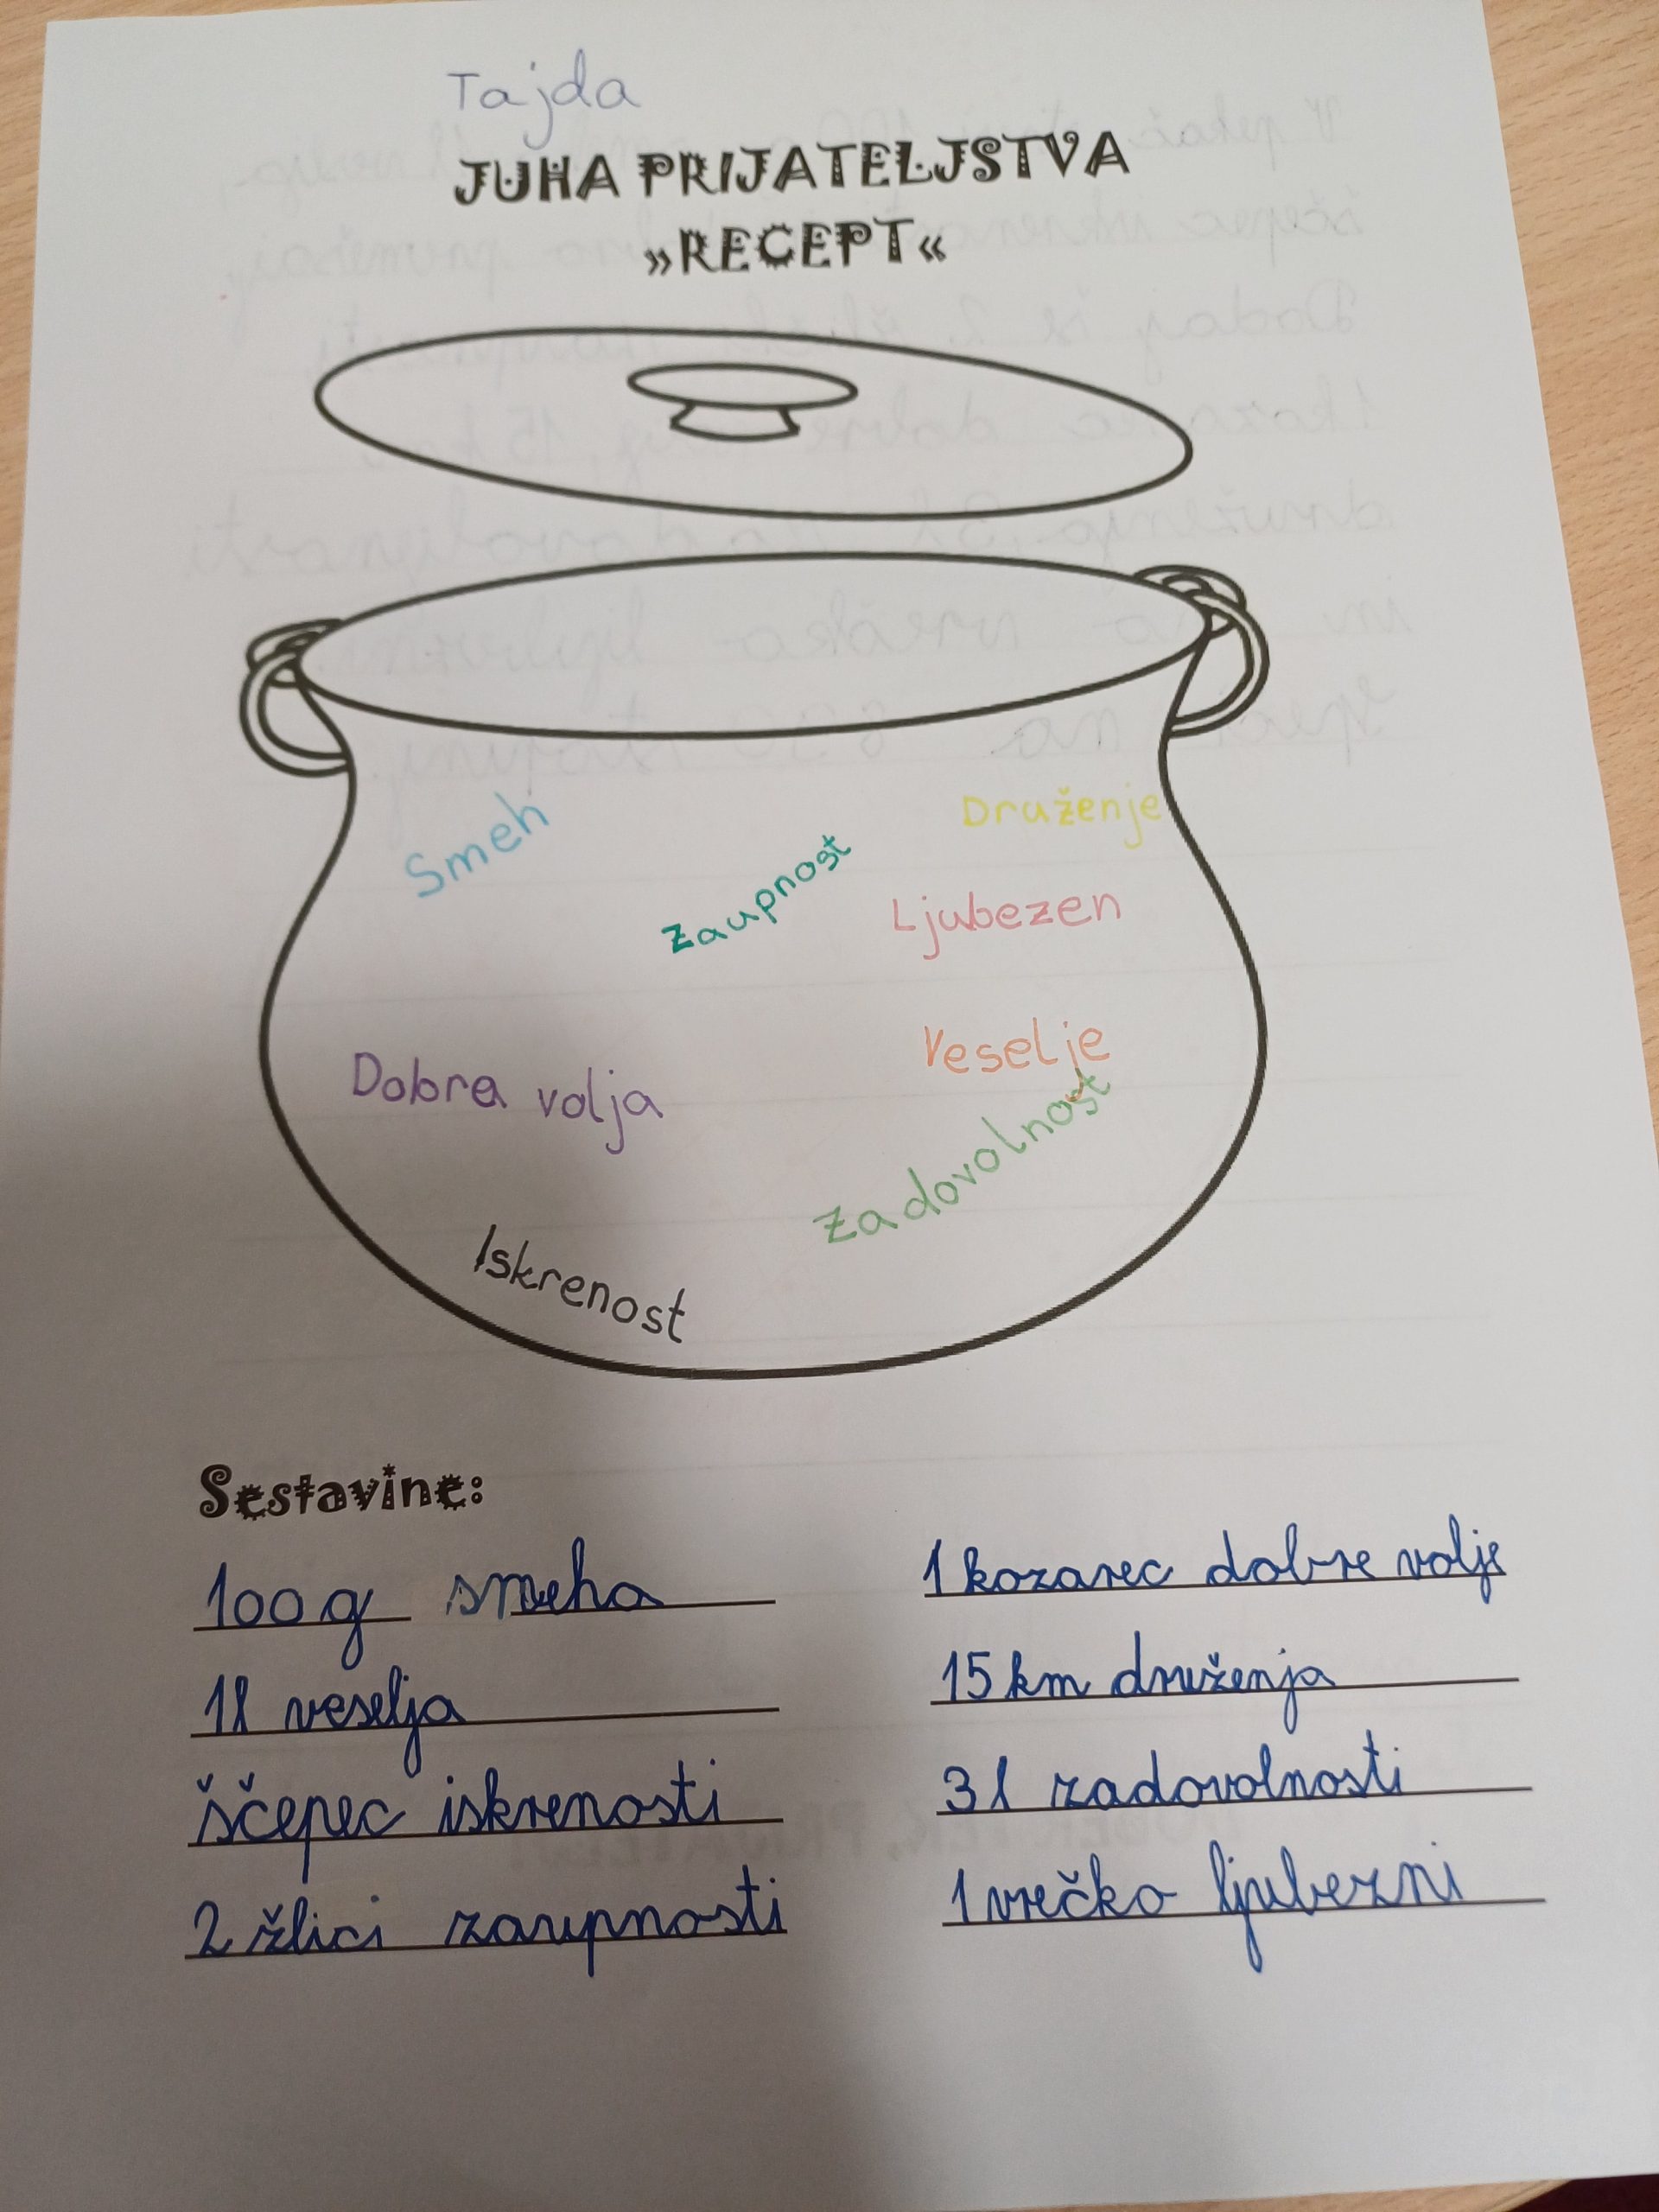 Tajda
JUHA PRIJATELJSTVA
»RECEPT«
Smeh
Druženje
Zaupnost
Ljubezen
Veselje
Dobra volja
Zadovolnost
Iskrenost
Sestavine:
100 g smeha
1l veselja
ščepec iskrenosti
2 žlici zaupnosti
1 kozarec dobre volje
15 km druženja
3 l zadovolnosti
1 vrečko ljubezni